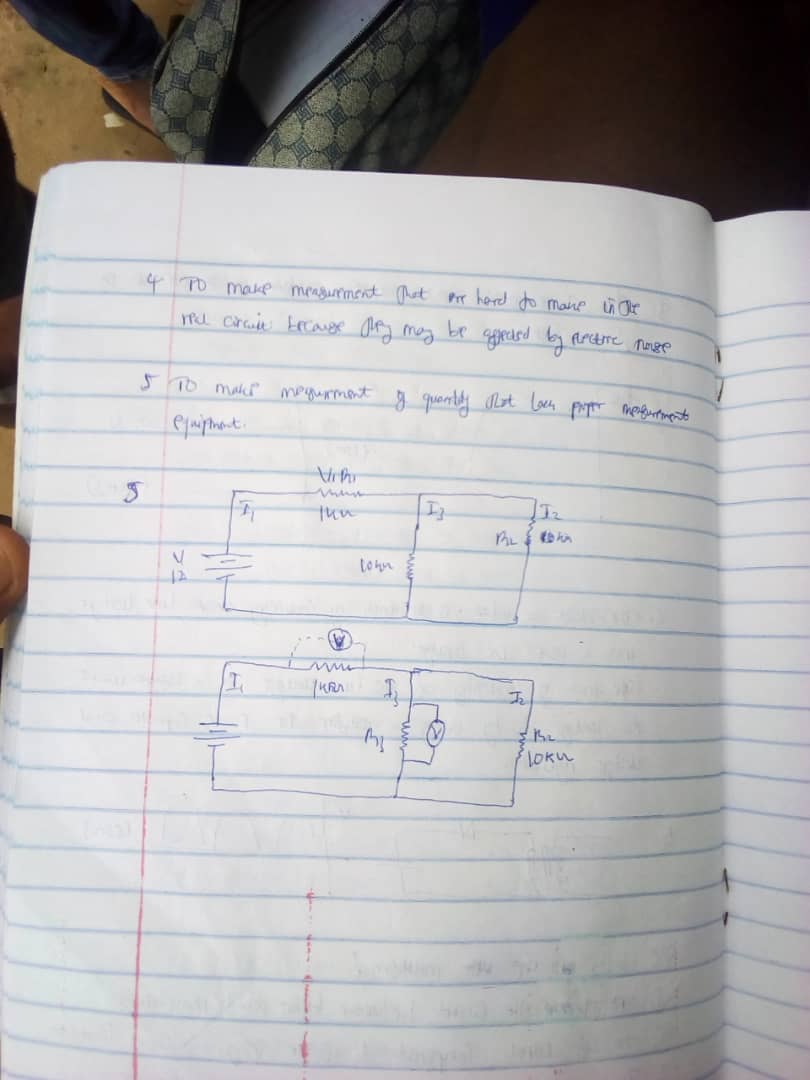 4 TO make measurement that are hard to make in the
real circuit because they may be affected by electric noise
5 TO make measurement of quantity that lack proper measurement
equiptment.
5
V1R1
I1
1KΩ
I3
I2
R2
10KΩ
V
12
A
I1
1KΩ
I3
I2
R3
V
R2
10KΩ